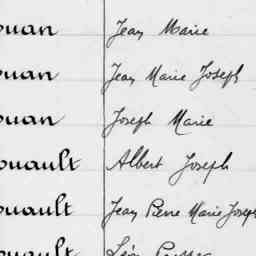 ouan Jean Marie
ouan Jean Marie Joseph
ouan Joseph Marie
ouault Albert Joseph
ouault Jean Pierre Marie Joseph
ouault Léon